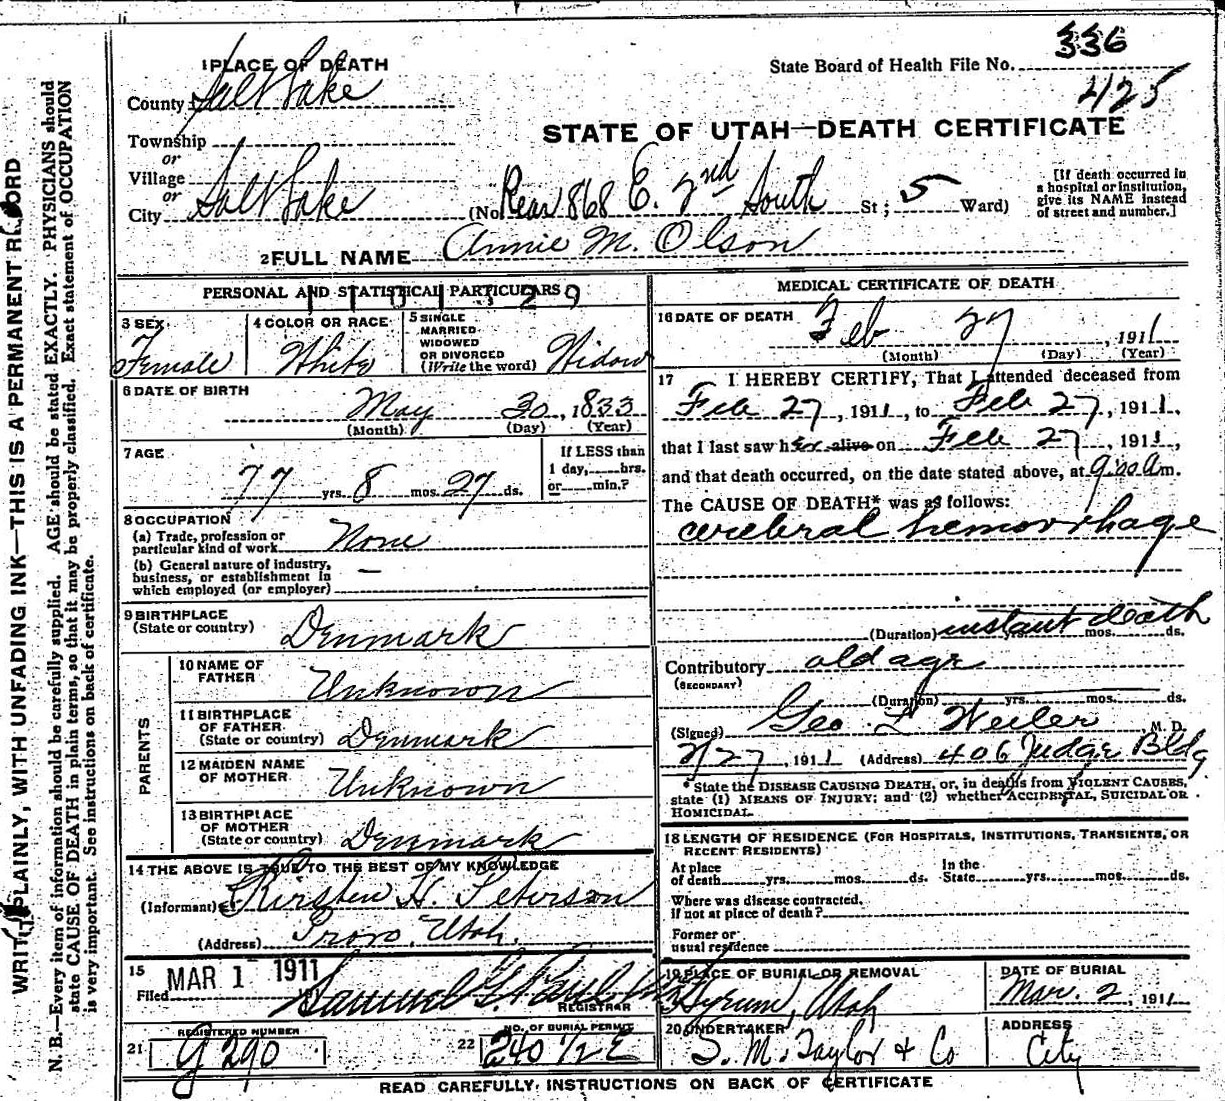 336
1 PLACE OF DEATH
State Board of Health File No.
425
County Salt Lake
STATE OF UTAH—DEATH CERTIFICATE
Township
or
Village
or
City Salt Lake (No Rear 868 E. 2nd South St; 5 Ward)
[If death occurred in a hospital or institution, give its NAME instead of street and number.]
2 FULL NAME Annie M. Olson
PERSONAL AND STATISTICAL PARTICULARS
3 SEX
Female
4 COLOR OR RACE
White
5 SINGLE
MARRIED
WIDOWED
OR DIVORCED
(Write the word) Widow
6 DATE OF BIRTH
May 30, 1833
(Month) (Day) (Year)
7 AGE
77 yrs. 8 mos. 27 ds.
If LESS than
1 day, hrs.
or min.?
8 OCCUPATION
(a) Trade, profession or
particular kind of work None
(b) General nature of industry,
business, or establishment in
which employed (or employer) —
9 BIRTHPLACE
(State or country) Denmark
PARENTS
10 NAME OF
FATHER Unknown
11 BIRTHPLACE
OF FATHER
(State or country) Denmark
12 MAIDEN NAME
OF MOTHER Unknown
13 BIRTHPLACE
OF MOTHER
(State or country) Denmark
14 THE ABOVE IS TRUE TO THE BEST OF MY KNOWLEDGE
(Informant) Kirsten H. Peterson
(Address) Provo, Utah.
15
Filed MAR 1 1911 Samuel G.
REGISTRAR
REGISTERED NUMBER
21 290
NO. OF BURIAL PERMIT
22 240 1/2 E
MEDICAL CERTIFICATE OF DEATH
16 DATE OF DEATH
Feb 27, 1911
(Month) (Day) (Year)
17 I HEREBY CERTIFY, That I attended deceased from
Feb 27, 1911, to Feb 27, 1911,
that I last saw her alive on Feb 27, 1911,
and that death occurred, on the date stated above, at 9:00 a m.
The CAUSE OF DEATH* was as follows:
cerebral hemorrhage
(Duration) instant death yrs. mos. ds.
Contributory old age
(SECONDARY)
(Duration) yrs. mos. ds.
(Signed) Geo. L Weiler M. D.
2/27, 1911 (Address) 406 Judge Bldg
* State the DISEASE CAUSING DEATH, or, in deaths from VIOLENT CAUSES,
state (1) MEANS OF INJURY; and (2) whether ACCIDENTAL, SUICIDAL OR
HOMICIDAL.
18 LENGTH OF RESIDENCE (FOR HOSPITALS, INSTITUTIONS, TRANSIENTS, OR
RECENT RESIDENTS)
At place
of death yrs. mos. ds.
In the
State yrs. mos. ds.
Where was disease contracted,
if not at place of death?
Former or
usual residence
19 PLACE OF BURIAL OR REMOVAL
Hyrum, Utah
DATE OF BURIAL
Mar. 2, 1911
20 UNDERTAKER
S. M. Taylor & Co
ADDRESS
City
READ CAREFULLY INSTRUCTIONS ON BACK OF CERTIFICATE
WRITE PLAINLY, WITH UNFADING INK—THIS IS A PERMANENT RECORD
N. B.—Every item of information should be carefully supplied. AGE should be stated EXACTLY. PHYSICIANS should
state CAUSE OF DEATH in plain terms, so that it may be properly classified. Exact statement of OCCUPATION
is very important. See instructions on back of certificate.